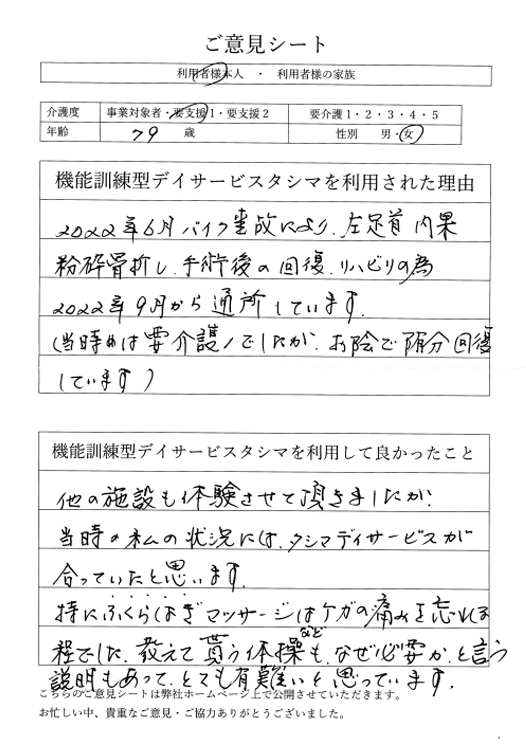 ご意見シート
利用者様本人 ・ 利用者様の家族
介護度 事業対象者・要支援1・要支援2 要介護1・2・3・4・5
年齢 79 歳 性別 男・女
機能訓練型デイサービスタシマを利用された理由
2022年6月バイク事故により、左足首内果
粉砕骨折し、手術後の回復、リハビリの為
2022年9月から通所しています。
(当時は要介護1でしたが、お陰で随分回復
しています)
機能訓練型デイサービスタシマを利用して良かったこと
他の施設も体験させて頂きましたが、
当時の私の状況には、タシマデイサービスが
合っていたと思います。
特にふくらはぎマッサージはケガの痛みを忘れる
程でした。教えて貰う体操なども、なぜ必要か、と言う
説明もあって、とても有難いと思っています。
こちらのご意見シートは弊社ホームページ上で公開させていただきます。
お忙しい中、貴重なご意見・ご協力ありがとうございました。